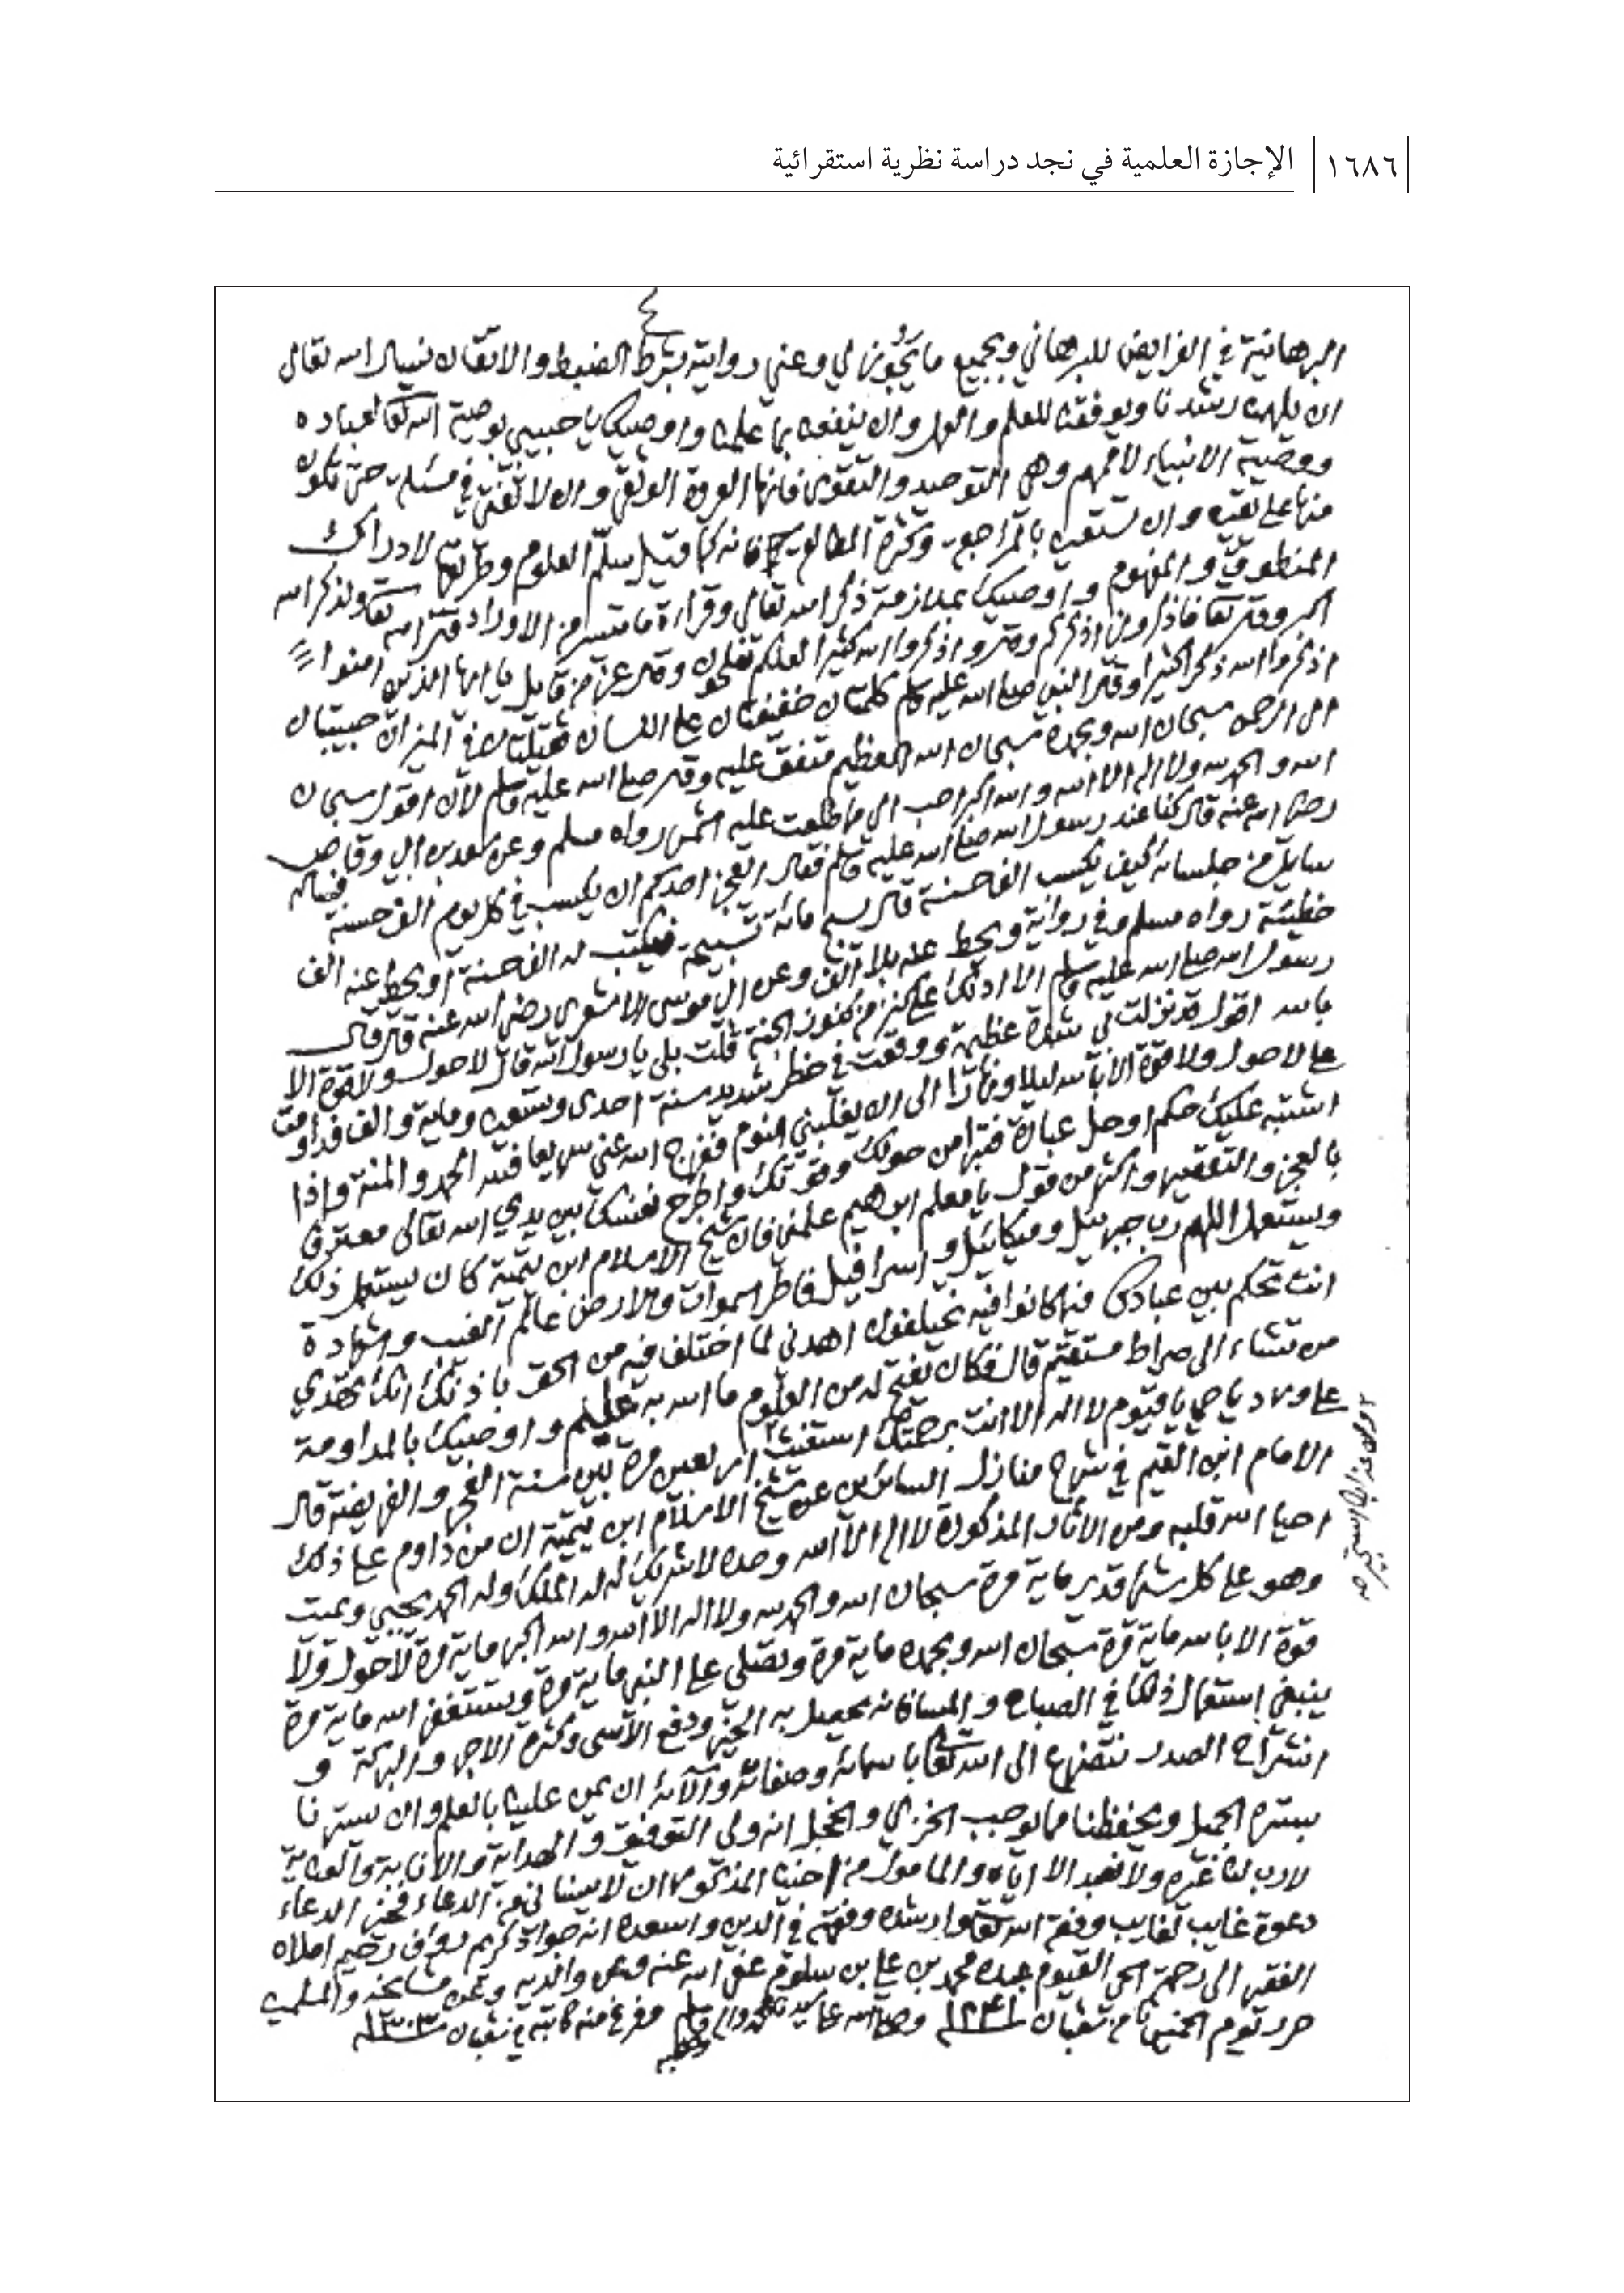 ١٦٨٦ الإجازة العلمية في نجد دراسة نظرية استقرائية
٤
البرهانية في الفرايض للبرهاني وبجميع ما يجوز لي وعني روايته بشرط الضبط والاتقان نسأل الله تعالى
ان يلهمنا رشدنا ويوفقنا للعلم والعمل وان ينفعنا بما علمنا واوصيك يا حبيبي بوصية الله تعا لعباده
ووصية الانبياء لاممهم وهي التوحيد والتقوى فانها العروة الوثقى وان لا تفتي في مسئلة حتى تكون
منها على يقين وان تستعين بالمراجعة وكثرة المطالعة فانه كما قيل سلم العلوم وطريقها لادراك
المنطوق والمفهوم واوصيك بملازمة ذكر الله تعالى وقراءة ما تيسر من الاوراد قال الله تعا ولذكر الله
اكبر وقال تعا فاذكروني اذكركم وقال واذكروا الله كثيرا لعلكم تفلحون وقال عز من قايل يا ايها الذين امنوا
اذكروا الله ذكرا كثيرا وقال النبي صلى الله عليه وسلم كلمتان خفيفتان على اللسان ثقيلتان في الميزان حبيبتان
الى الرحمن سبحان الله وبحمده سبحان الله العظيم متفق عليه وقال صلى الله عليه وسلم لأن اقول سبحان
الله والحمد لله ولا اله الا الله والله اكبر احب الي مما طلعت عليه الشمس رواه مسلم وعن سعد بن ابي وقاص
رضي الله عنه قال كنا عند رسول الله صلى الله عليه وسلم فقال ايعجز احدكم ان يكسب في كل يوم الف حسنة فساله
سايل من جلسائه كيف يكسب الف حسنة قال يسبح مائة تسبيحة فيكتب له الف حسنة او يحط عنه الف
خطيئة رواه مسلم وفي رواية ويحط عنه بلا الف وعن ابي موسى الاشعري رضي الله عنه قال قال
رسول الله صلى الله عليه وسلم الا ادلك على كنز من كنوز الجنة قلت بلى يا رسول الله قال لا حول ولا قوة الا
بالله اقول قد نزلت لي شدة عظيمة ووقعت في خطر شديد سنة احدى وتسعين وماية والف فداومت
على لا حول ولا قوة الا بالله ليلا ونهارا الى ان يغلبني النوم ففرج الله عني سريعا فلله الحمد والمنة واذا
اشتبه عليك حكم او حل عبارة فتبرا من حولك وقوتك واطرح نفسك بين يدي الله تعالى معترفا
بالعجز والتقصير واكثر من قول يا معلم ابراهيم علمني فان شيخ الاسلام ابن تيمية كان يستعمل ذلك
ويستعمل اللهم رب جبرئيل وميكائيل واسرافيل فاطر السموات والارض عالم الغيب والشهادة
انت تحكم بين عبادك فيما كانوا فيه يختلفون اهدني لما اختلف فيه من الحق باذنك انك تهدي
من تشاء الى صراط مستقيم قال فكان يفتح له من العلوم ما الله به عليم واوصيك بالمداومة
على يا حي يا قيوم لا اله الا انت برحمتك استغيث اربعين مرة بين سنة الفجر والفريضة قال
الامام ابن القيم في شرح منازل السائرين عن شيخ الاسلام ابن تيمية ان من داوم على ذلك
احيا الله قلبه ومن الاثار المذكورة لا اله الا الله وحده لا شريك له له الملك وله الحمد يحيي ويميت
وهو على كل شيء قدير ماية مرة سبحان الله والحمد لله ولا اله الا الله والله اكبر ماية مرة لا حول ولا
قوة الا بالله ماية مرة سبحان الله وبحمده ماية مرة وتصلي على النبي ماية مرة وتستغفر الله ماية مرة
ينبغي استعمال ذلك في الصباح والمسا فانه يحصل به الخير ودفع الاسى وكثرة الاجر والبركة و
انشراح الصدر نتضرع الى الله تعا باسمائه وصفاته وآلائه ان يمن علينا بالعلم وان يسترنا
بستره الجميل ويحفظنا مما يوجب الخزي والخجل انه ولي التوفيق والهداية والانابة
لا رب لنا غيره ولا نعبد الا اياه والمامول من اخينا المذكور ان لا ينسانا من الدعاء فخير الدعاء
دعوة غايب لغايب وفقه الله تعا وارشده وفقهه في الدين واسعده انه جواد كريم رؤف رحيم املاه
الفقير الى رحمة الحي القيوم عبده محمد بن علي بن سلوم عفى الله عنه وعن والديه وعن مشايخه والمسلمين
حرر يوم الخميس من شعبان وصلى الله على سيدنا محمد واله وسلم وفرغ منه كاتبه في شعبان